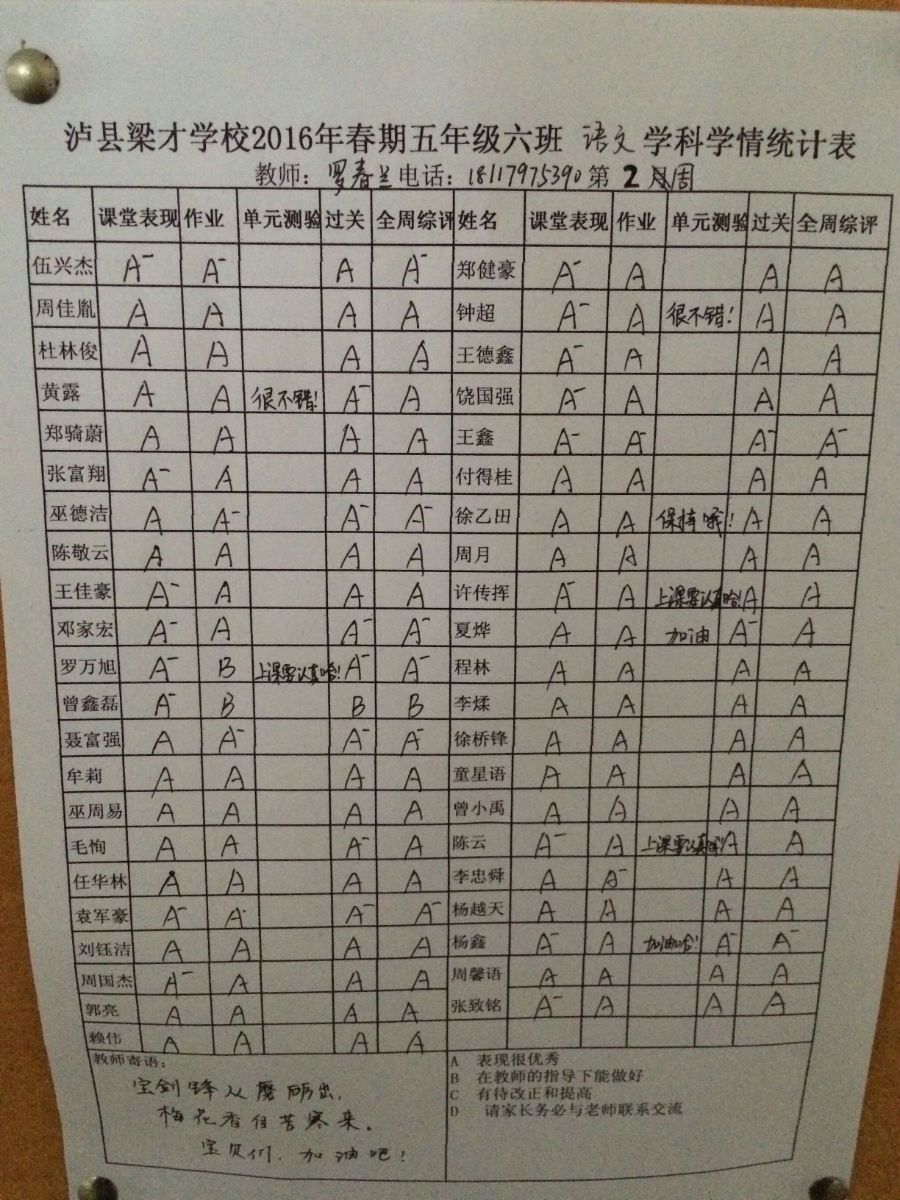 泸县梁才学校2016年春期五年级六班 语文 学科学情统计表
教师: 罗春兰 电话: 18117975390 第 2 周
姓名 课堂表现 作业 单元测验 过关 全周综评 姓名 课堂表现 作业 单元测验 过关 全周综评
伍兴杰 A- A- A A- 郑健豪 A- A A A
周佳胤 A A A A 钟超 A- A 很不错! A A
杜林俊 A A A A 王德鑫 A- A A A
黄露 A A 很不错! A- A 饶国强 A- A A A
郑骑蔚 A A A A 王鑫 A- A- A- A-
张富翔 A- A A A 付得桂 A A A A
巫德洁 A A- A- A- 徐乙田 A A 保持哦! A A
陈敬云 A A A A 周月 A A A A
王佳豪 A- A A A 许传挥 A- A 上课要认真哈! A A
邓家宏 A- A A- A- 夏烨 A A 加油 A- A
罗万旭 A- B 上课要认真哈! A- A- 程林 A A A A
曾鑫磊 A- B B B 李煣 A A A A
聂富强 A A- A- A- 徐桥锋 A A A A
牟莉 A A A A 童星语 A A A A
巫周易 A A A A 曾小禹 A A A A
毛恂 A A A- A 陈云 A- A 上课要认真 A A
任华林 A A A A 李忠舜 A A- A A
袁军豪 A- A- A- A- 杨越天 A A A A
刘钰洁 A A A A 杨鑫 A- A 加油哈! A- A-
周国杰 A- A A A 周馨语 A A A A
郭亮 A A A A 张致铭 A- A A A
赖伟 A A A A
教师寄语:
宝剑锋从磨砺出,
梅花香自苦寒来。
宝贝们,加油吧!
A 表现很优秀
B 在教师的指导下能做好
C 有待改正和提高
D 请家长务必与老师联系交流